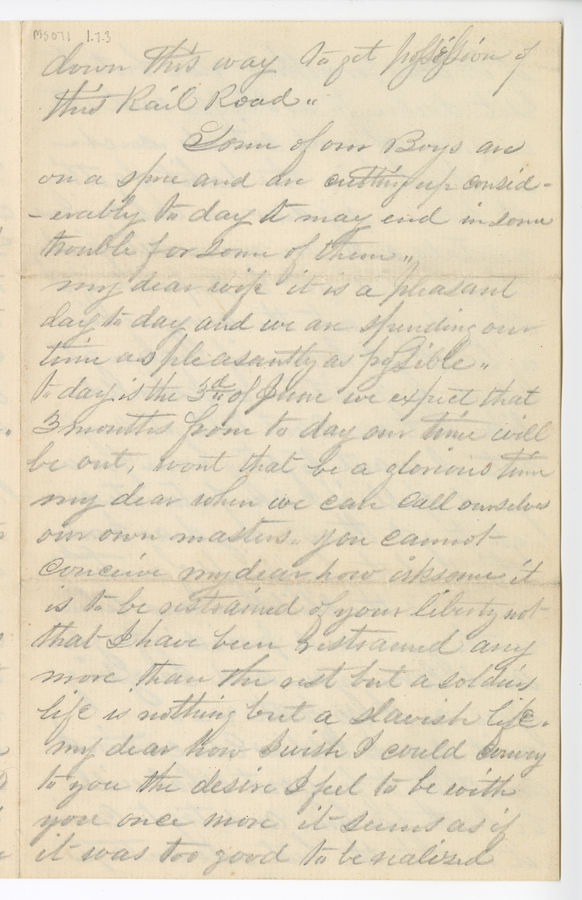 MS071 1.7.3
down this way to get possession of
this Rail Road "
Some of our Boys are
on a spree and are cutting up consid-
-erably to day it may end in some
trouble for some of them "
my dear wife it is a pleasant
day to day and we are spending our
time as pleasantly as possible "
to day is the 3d of June we expect that
3 months from to day our time will
be out, wont that be a glorious time
my dear when we can call ourselves
our own masters. you cannot
conceive my dear how irksome it
is to be restrained of your liberty not
that I have been restrained any
more than the rest but a soldiers
life is nothing but a slavish life.
my dear how I wish I could convey
to you the desire I feel to be with
you once more it seems as if
it was too good to be realised